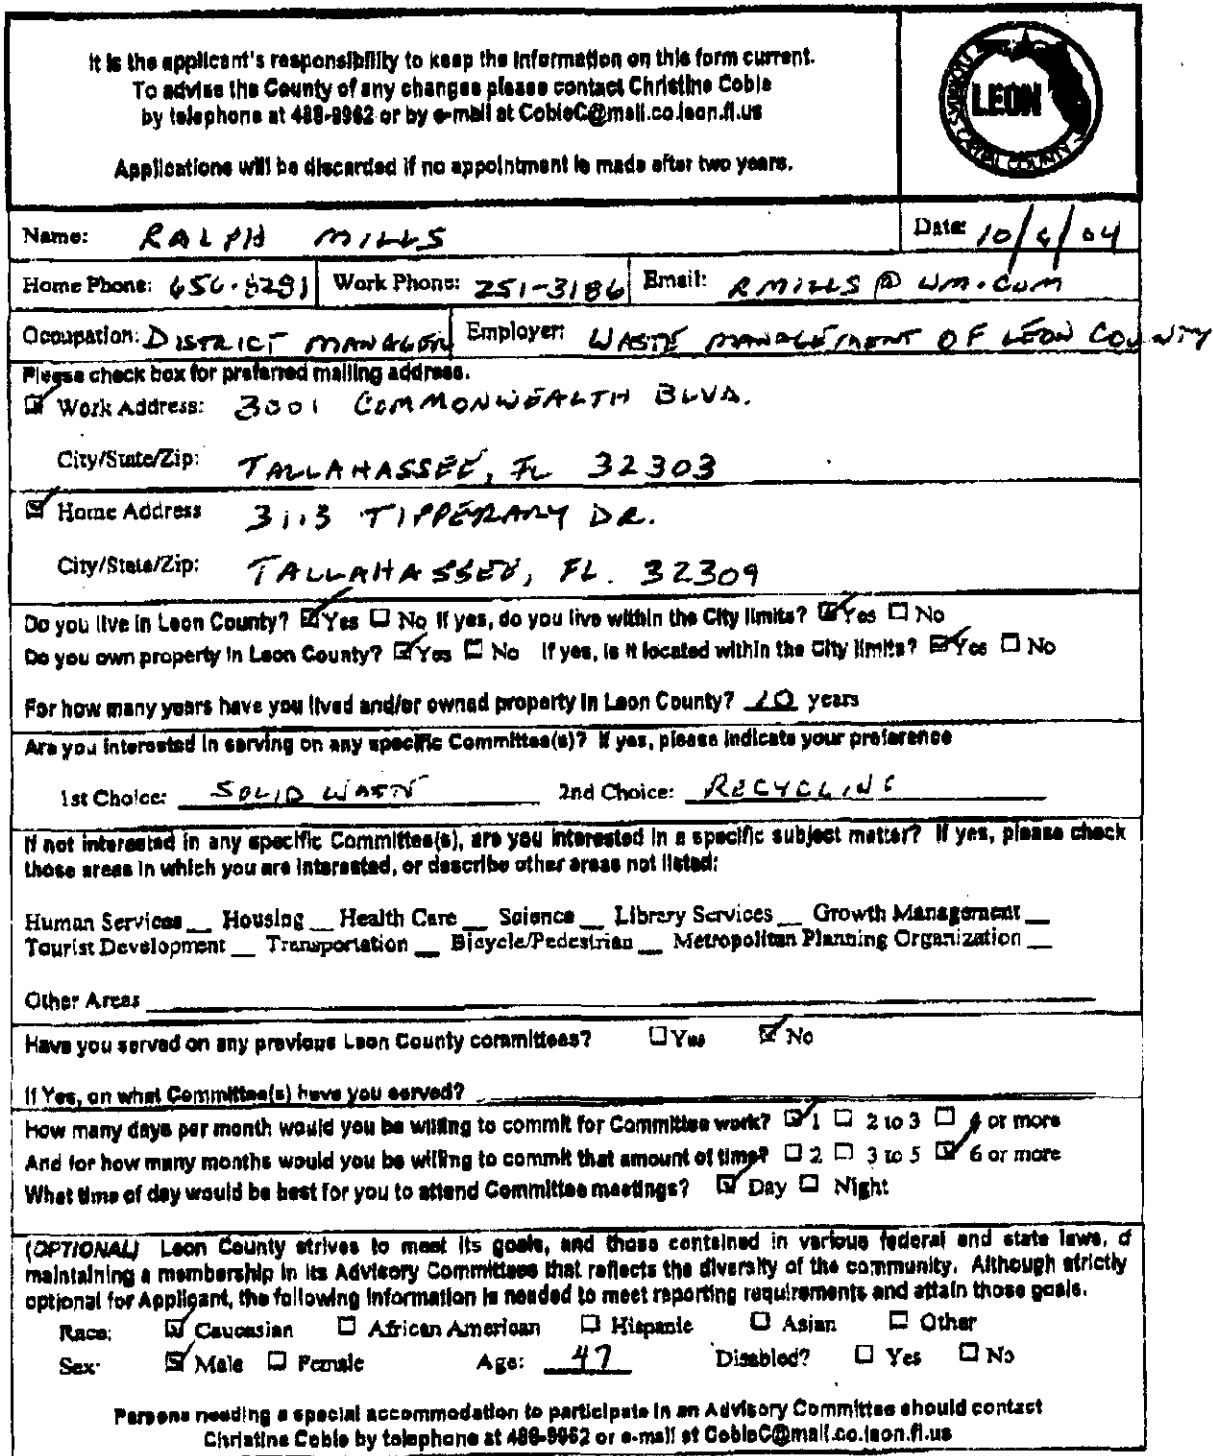 It is the applicant's responsibility to keep the information on this form current.
To advise the County of any changes please contact Christine Coble
by telephone at 488-9962 or by e-mail at CobleC@mail.co.leon.fl.us
Applications will be discarded if no appointment is made after two years.
LEON
COUNTY
Name: RALPH MILLS
Date: 10/6/04
Home Phone: 656-8291 Work Phone: 251-3186 Email: RMILLS@WM.COM
Occupation: DISTRICT MANAGER Employer: WASTE MANAGEMENT OF LEON COUNTY
Please check box for preferred mailing address.
☑ Work Address: 3001 COMMONWEALTH BLVD.
City/State/Zip: TALLAHASSEE, FL 32303
☑ Home Address 3113 TIPPERARY DR.
City/State/Zip: TALLAHASSEE, FL. 32309
Do you live in Leon County? ☑ Yes ☐ No If yes, do you live within the City limits? ☑ Yes ☐ No
Do you own property in Leon County? ☑ Yes ☐ No If yes, is it located within the City limits? ☑ Yes ☐ No
For how many years have you lived and/or owned property in Leon County? 10 years
Are you interested in serving on any specific Committee(s)? If yes, please indicate your preference
1st Choice: SOLID WASTE 2nd Choice: RECYCLING
If not interested in any specific Committee(s), are you interested in a specific subject matter? If yes, please check
those areas in which you are interested, or describe other areas not listed:
Human Services __ Housing __ Health Care __ Science __ Library Services __ Growth Management __
Tourist Development __ Transportation __ Bicycle/Pedestrian __ Metropolitan Planning Organization __
Other Areas
Have you served on any previous Leon County committees? ☐ Yes ☑ No
If Yes, on what Committee(s) have you served?
How many days per month would you be willing to commit for Committee work? ☑ 1 ☐ 2 to 3 ☐ 4 or more
And for how many months would you be willing to commit that amount of time? ☐ 2 ☐ 3 to 5 ☑ 6 or more
What time of day would be best for you to attend Committee meetings? ☑ Day ☐ Night
(OPTIONAL) Leon County strives to meet its goals, and those contained in various federal and state laws, of
maintaining a membership in its Advisory Committees that reflects the diversity of the community. Although strictly
optional for Applicant, the following information is needed to meet reporting requirements and attain those goals.
Race: ☑ Caucasian ☐ African American ☐ Hispanic ☐ Asian ☐ Other
Sex: ☑ Male ☐ Female Age: 47 Disabled? ☐ Yes ☐ No
Persons needing a special accommodation to participate in an Advisory Committee should contact
Christine Coble by telephone at 488-9962 or e-mail at CobleC@mail.co.leon.fl.us